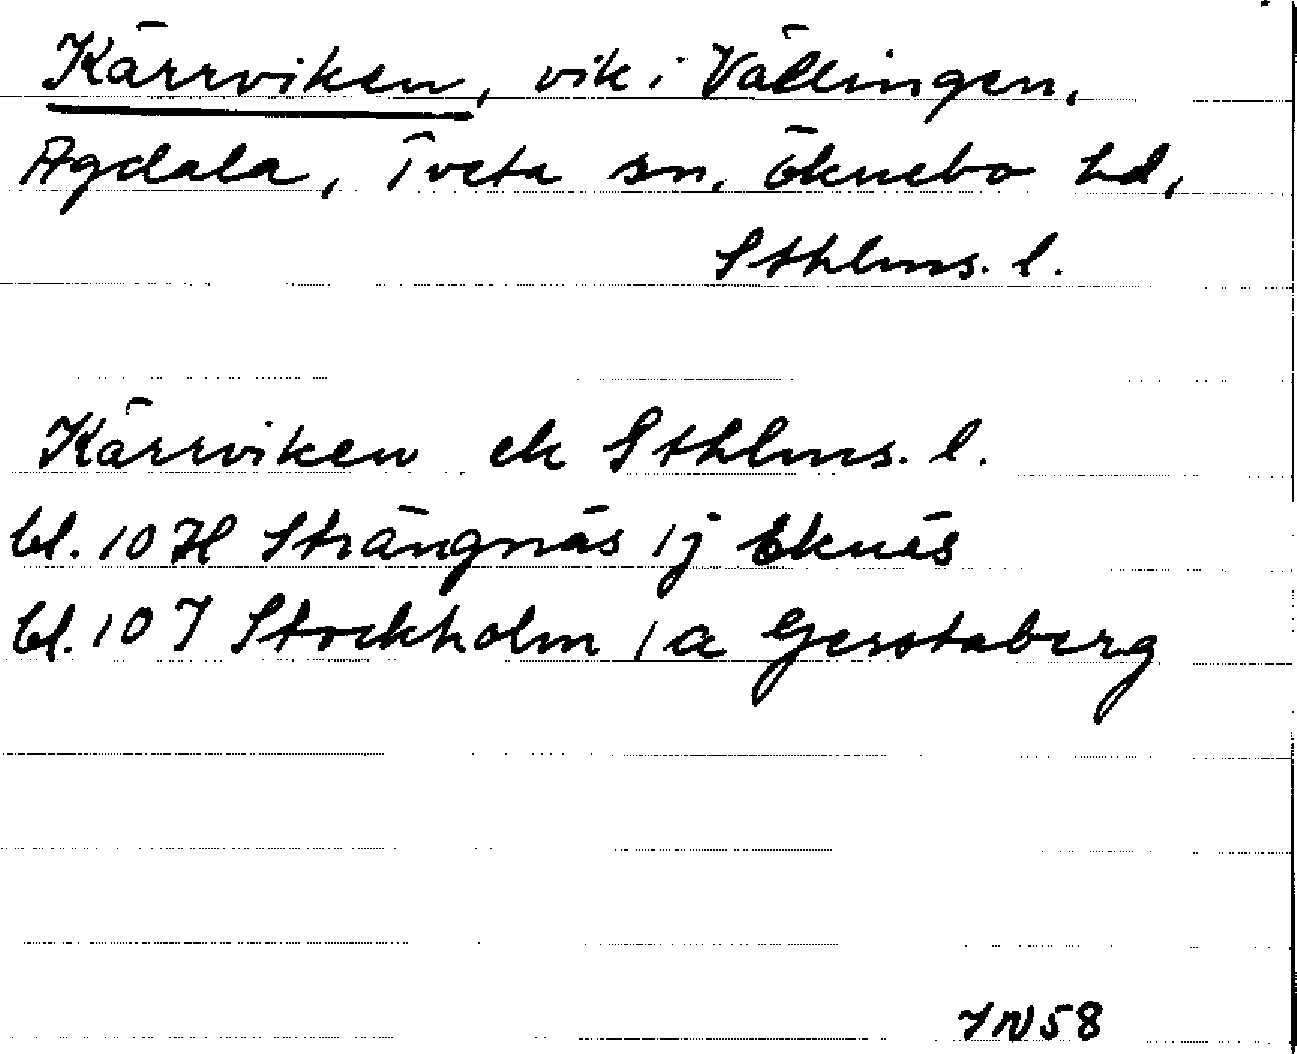 Kärrviken, vik i Vällingen,
Agdala, Tveta sn, Öknebo hd,
Sthlms. l.
Kärrviken ek Sthlms. l.
bl. 10 H Strängnäs 1j Eknäs
bl. 10 I Stockholm 1a Gerstaberg
IN58